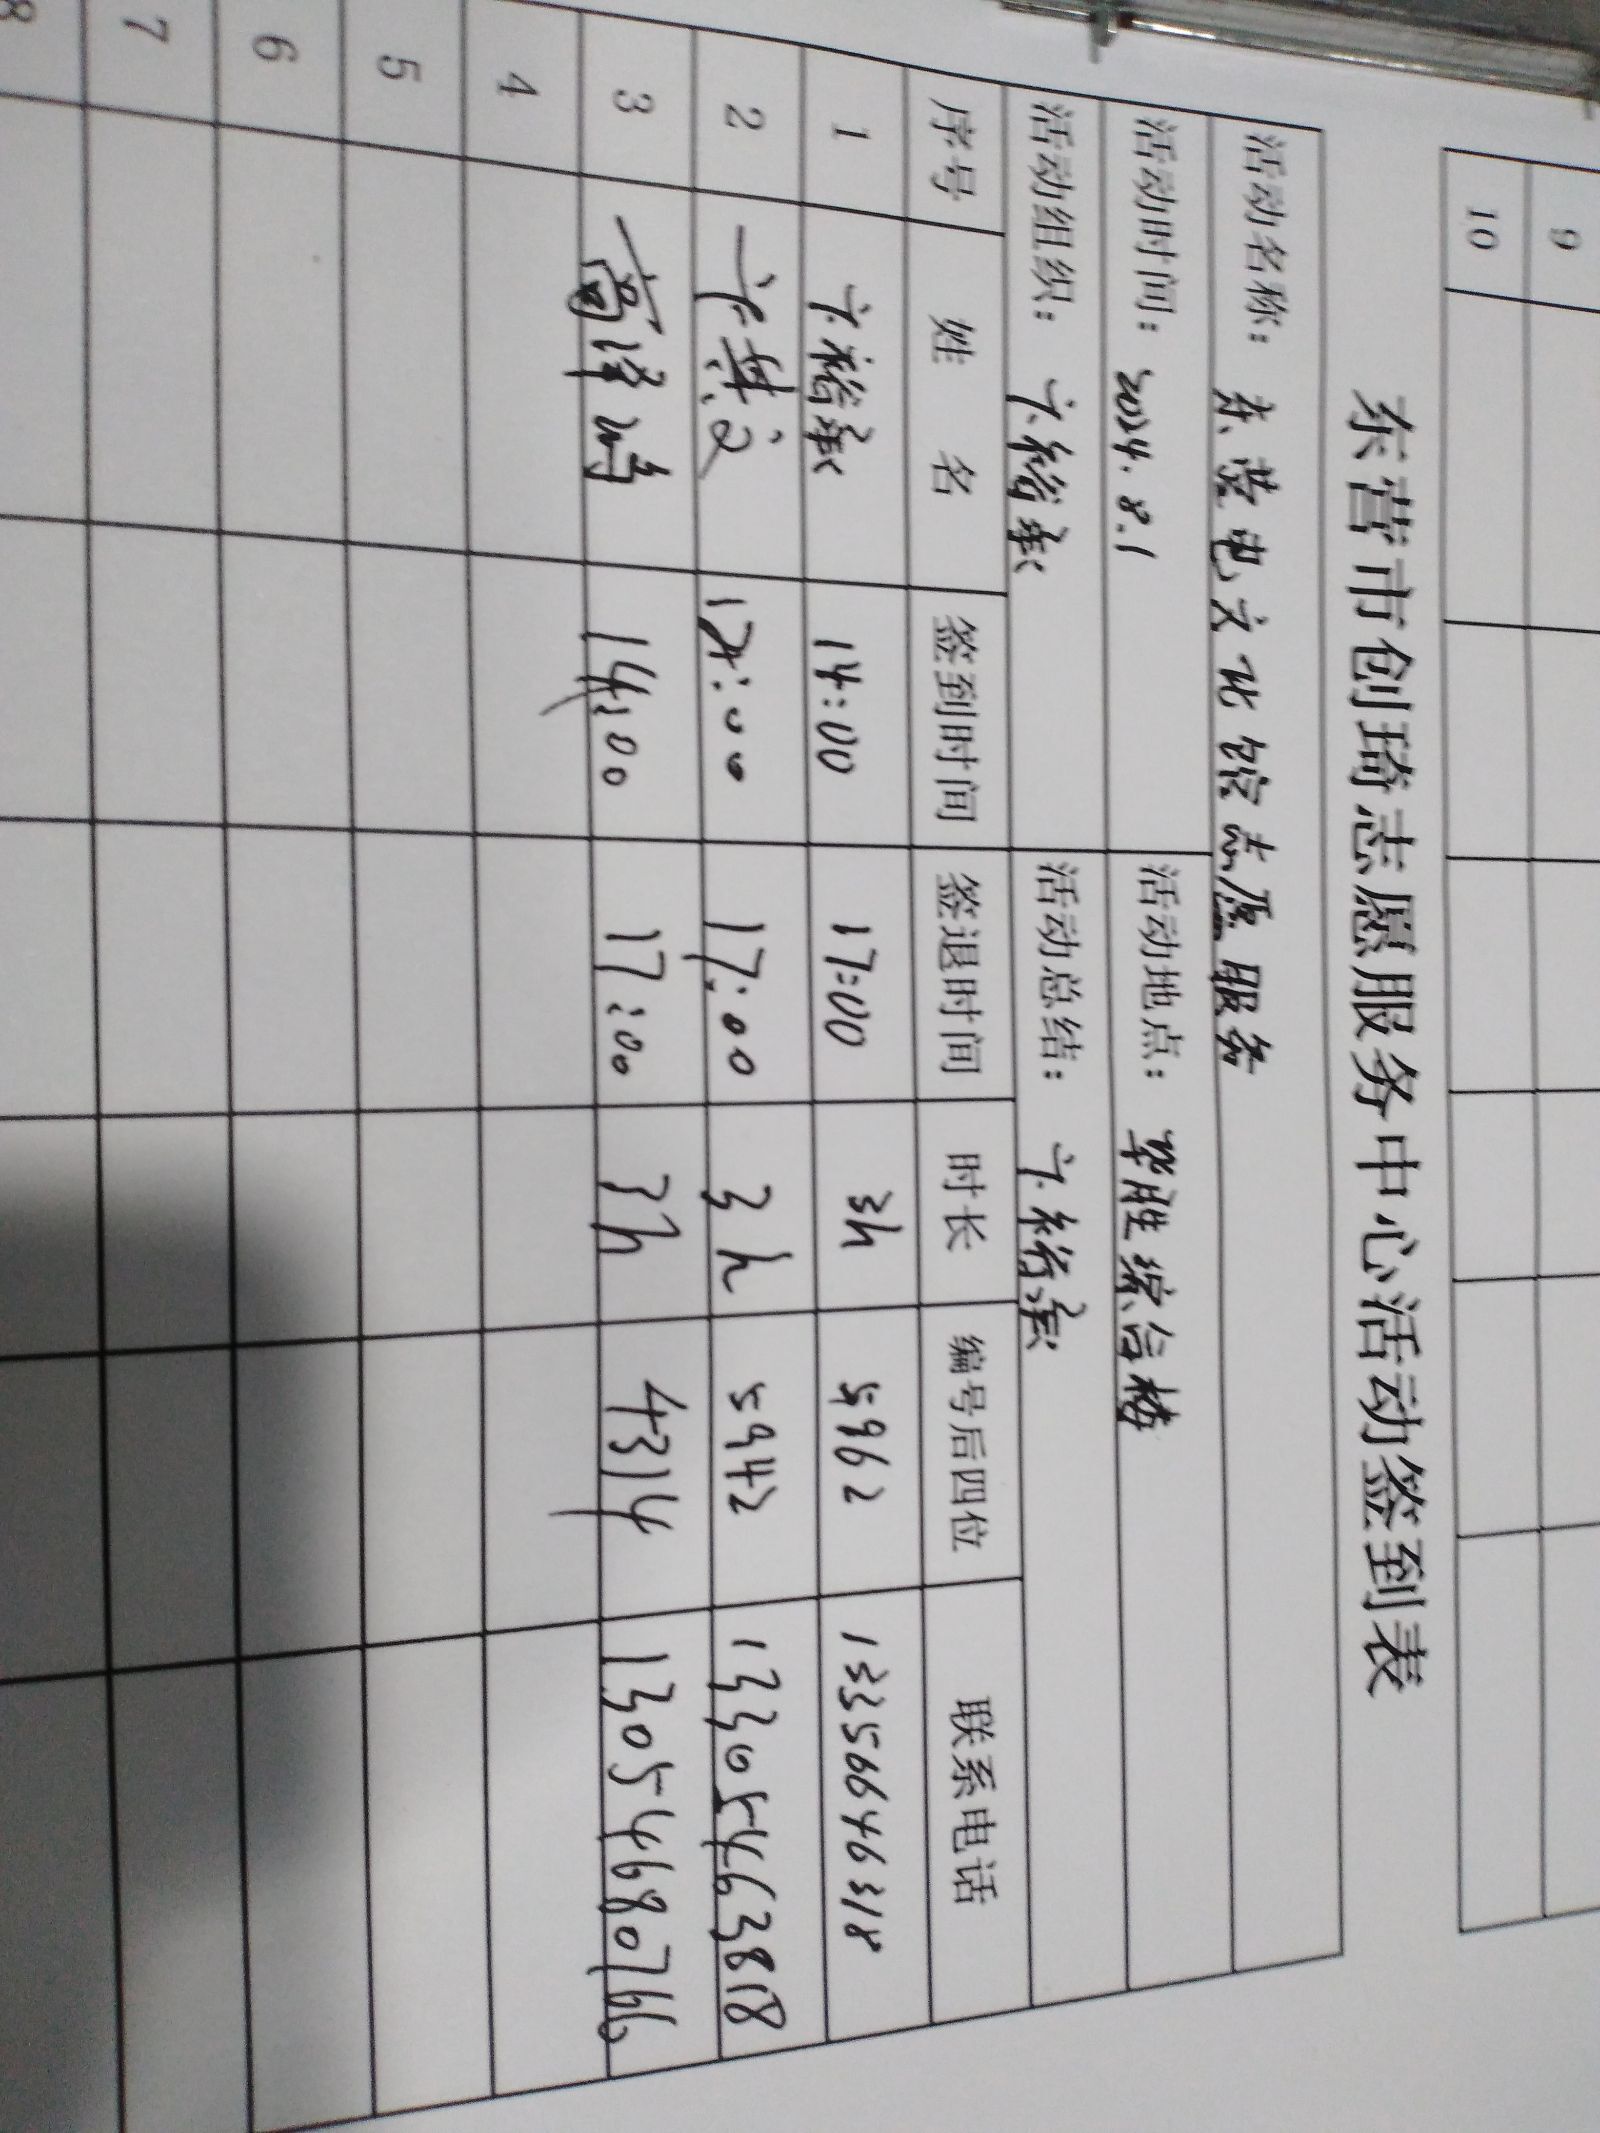 9
10
东营市创琦志愿服务中心活动签到表
活动名称：东营电文化馆志愿服务
活动时间：2024.8.1 活动地点：华胜综合楼
活动组织：卞裕承 活动总结：卞裕承
序号 姓名 签到时间 签退时间 时长 编号后四位 联系电话
1 卞裕承 14:00 17:00 3h 5962 13356646318
2 14:00 17:00 3h 5942 13305463818
3 14:00 17:00 3h 4314 13054680766
4
5
6
7
8